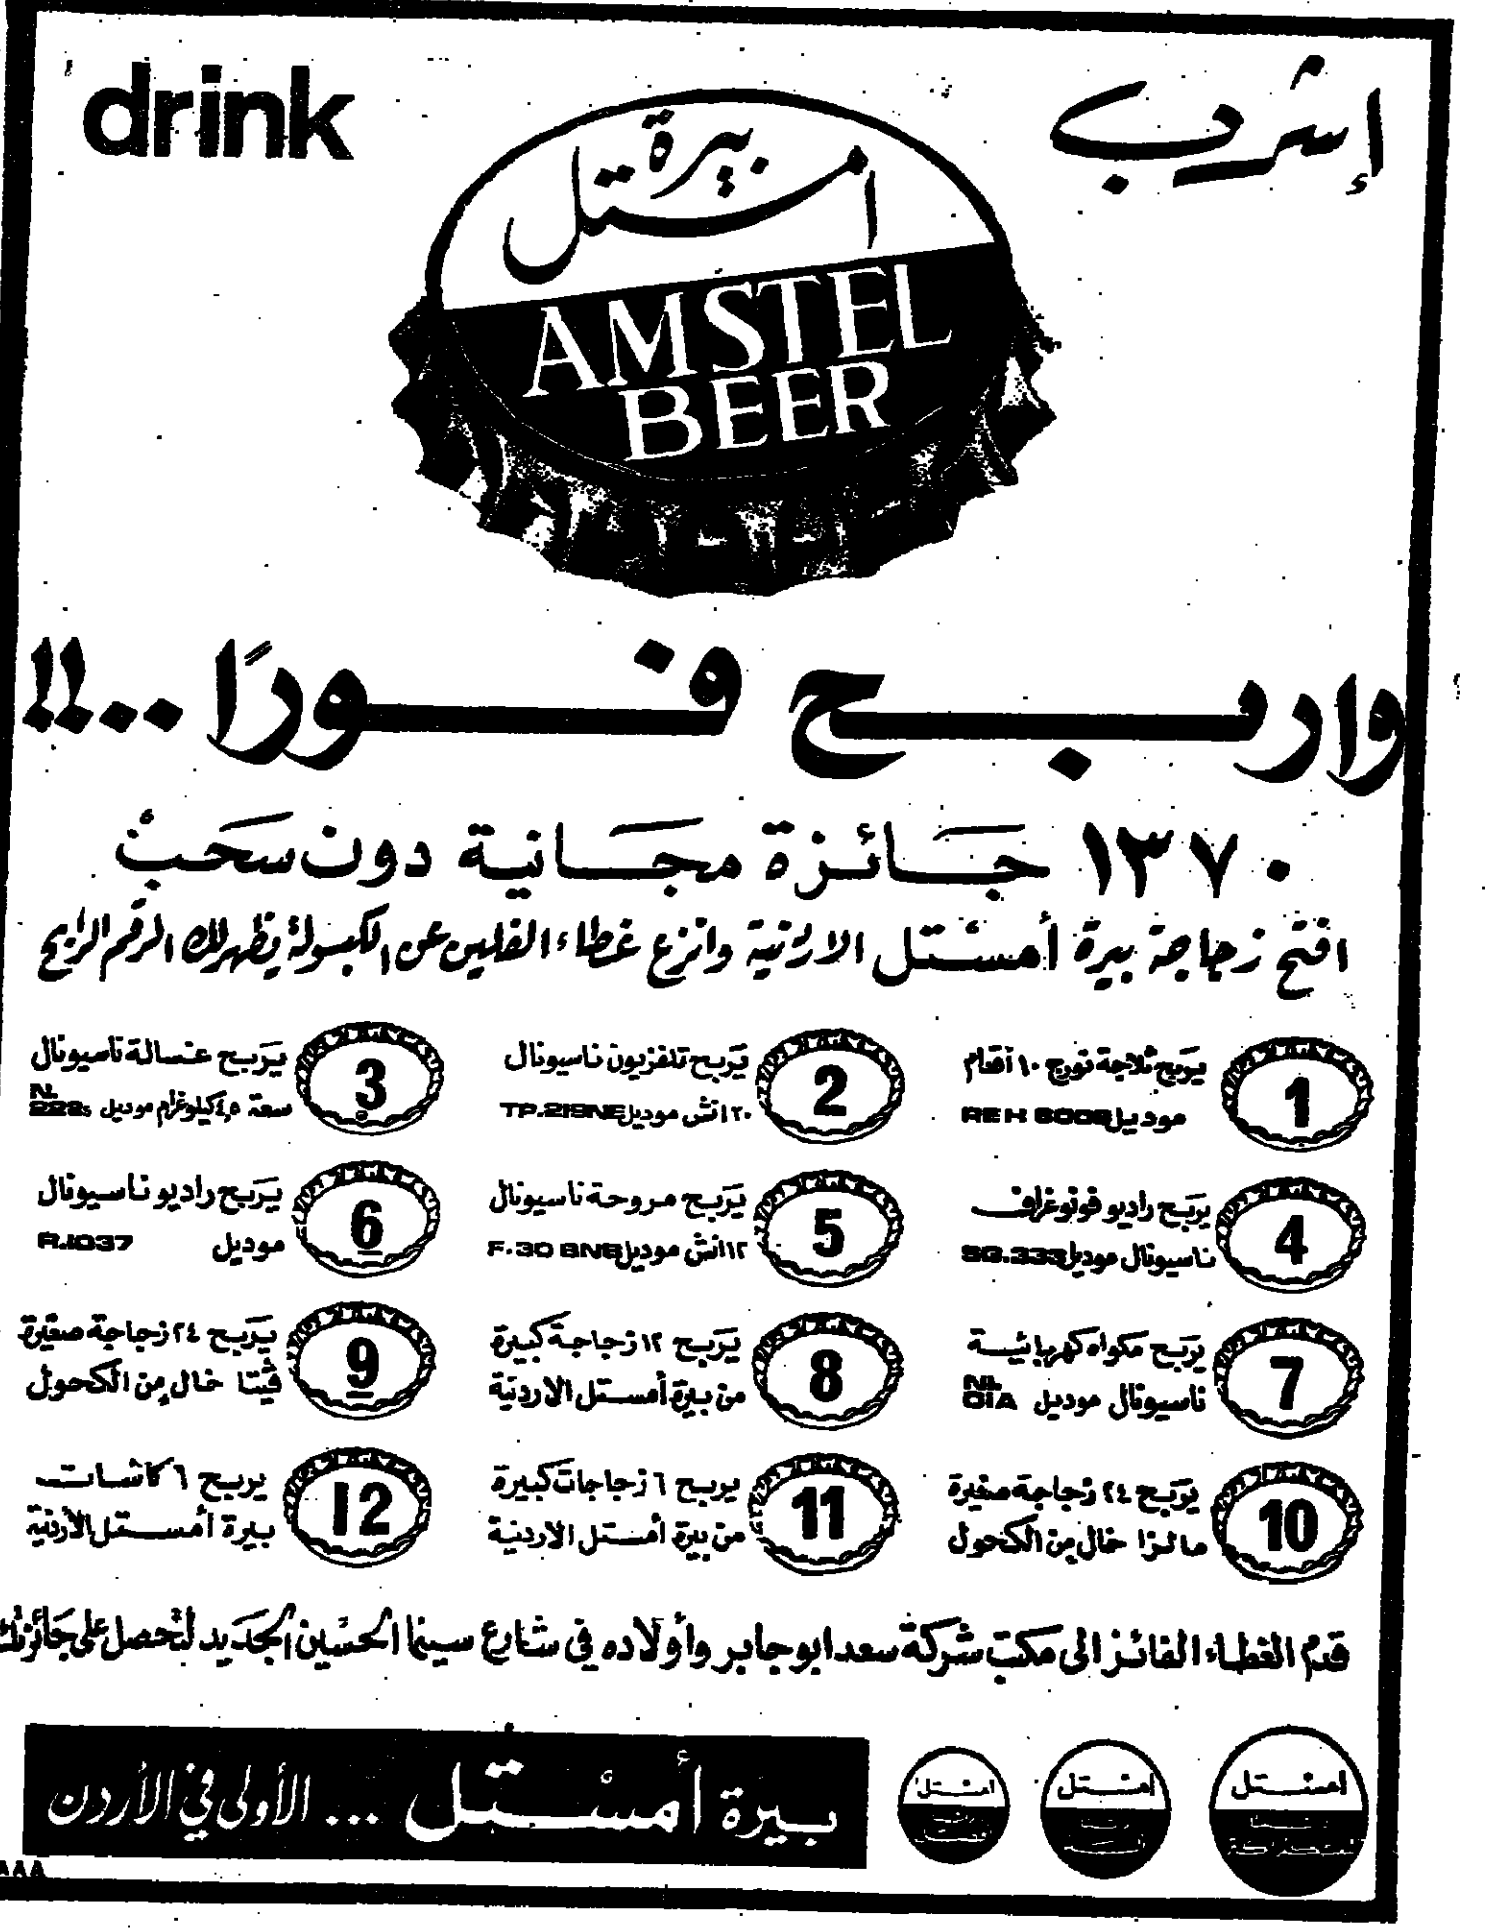 إشرب
drink
بيرة
امستل
AMSTEL
BEER
واربح فورًا ..!!
١٣٧٠ جائزة مجانية دون سَحبْ
افتح زجاجة بيرة أمستل الاردنية وانزع غطاء الفلين عن الكبسولة يظهر لك الرقم الرابح
1
يَربح ثلاجة نورج ١٠ أقدام
موديل
2
يَربح تلفزيون ناسيونال
٢٠ انش موديل TP.219NE
3
يَربح غسالة ناسيونال
سعة ٤٫٥ كيلوغرام موديل
4
يربَح راديو فونوغراف
ناسيونال موديل SG.333
5
يَربح مروحة ناسيونال
١٢ انش موديل
6
يَربح راديو ناسيونال
موديل R.1037
7
يربَح مكواه كهربائية
ناسيونال موديل
8
يَربح ١٢ زجاجة كبيرة
من بيرة أمستل الاردنية
9
يَربح ٢٤ زجاجة صغيرة
ڤيتا خال من الكحول
10
يَربح ٢٤ زجاجة صغيرة
مالزا خال من الكحول
11
يربح ٦ زجاجات كبيرة
من بيرة أمستل الاردنية
12
يربح ٦ كاشات
بيرة أمستل الأردنية
قدم الغطاء الفائز الى مكتب شركة سعد ابو جابر وأولاده في شارع سينما الحسين الجديد لتحصل على جائزتك
بيرة أمستل ... الأولى في الأردن
امستل
امستل
امستل
٨٨٨